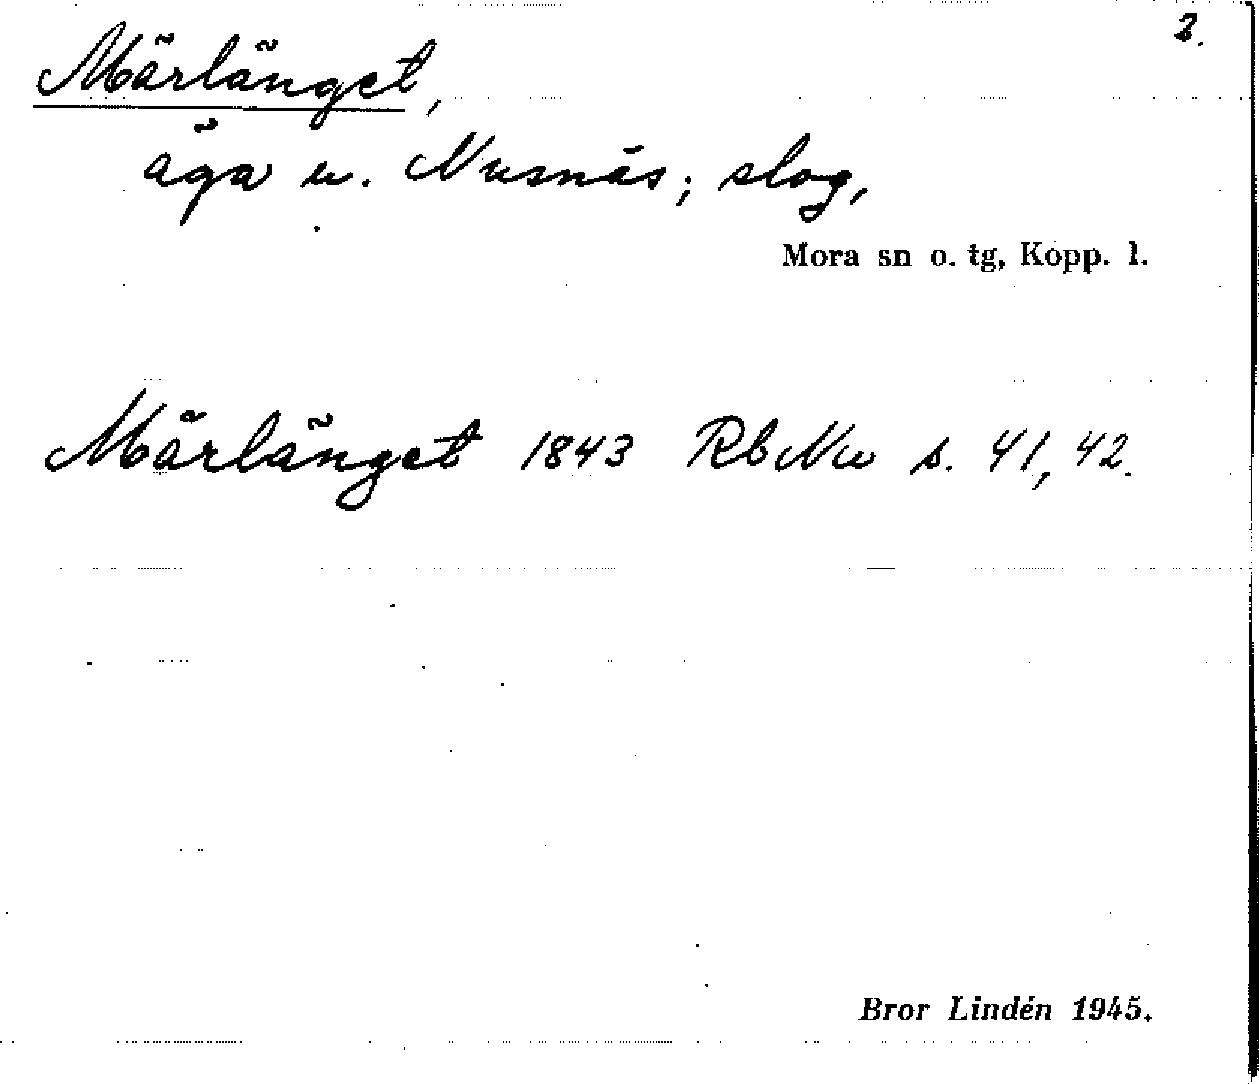 2.
Märlänget,
äga u. Nusnäs; slog,
Mora sn o. tg, Kopp. l.
Märlänget 1843 RbNu s. 41, 42.
Bror Lindén 1945.